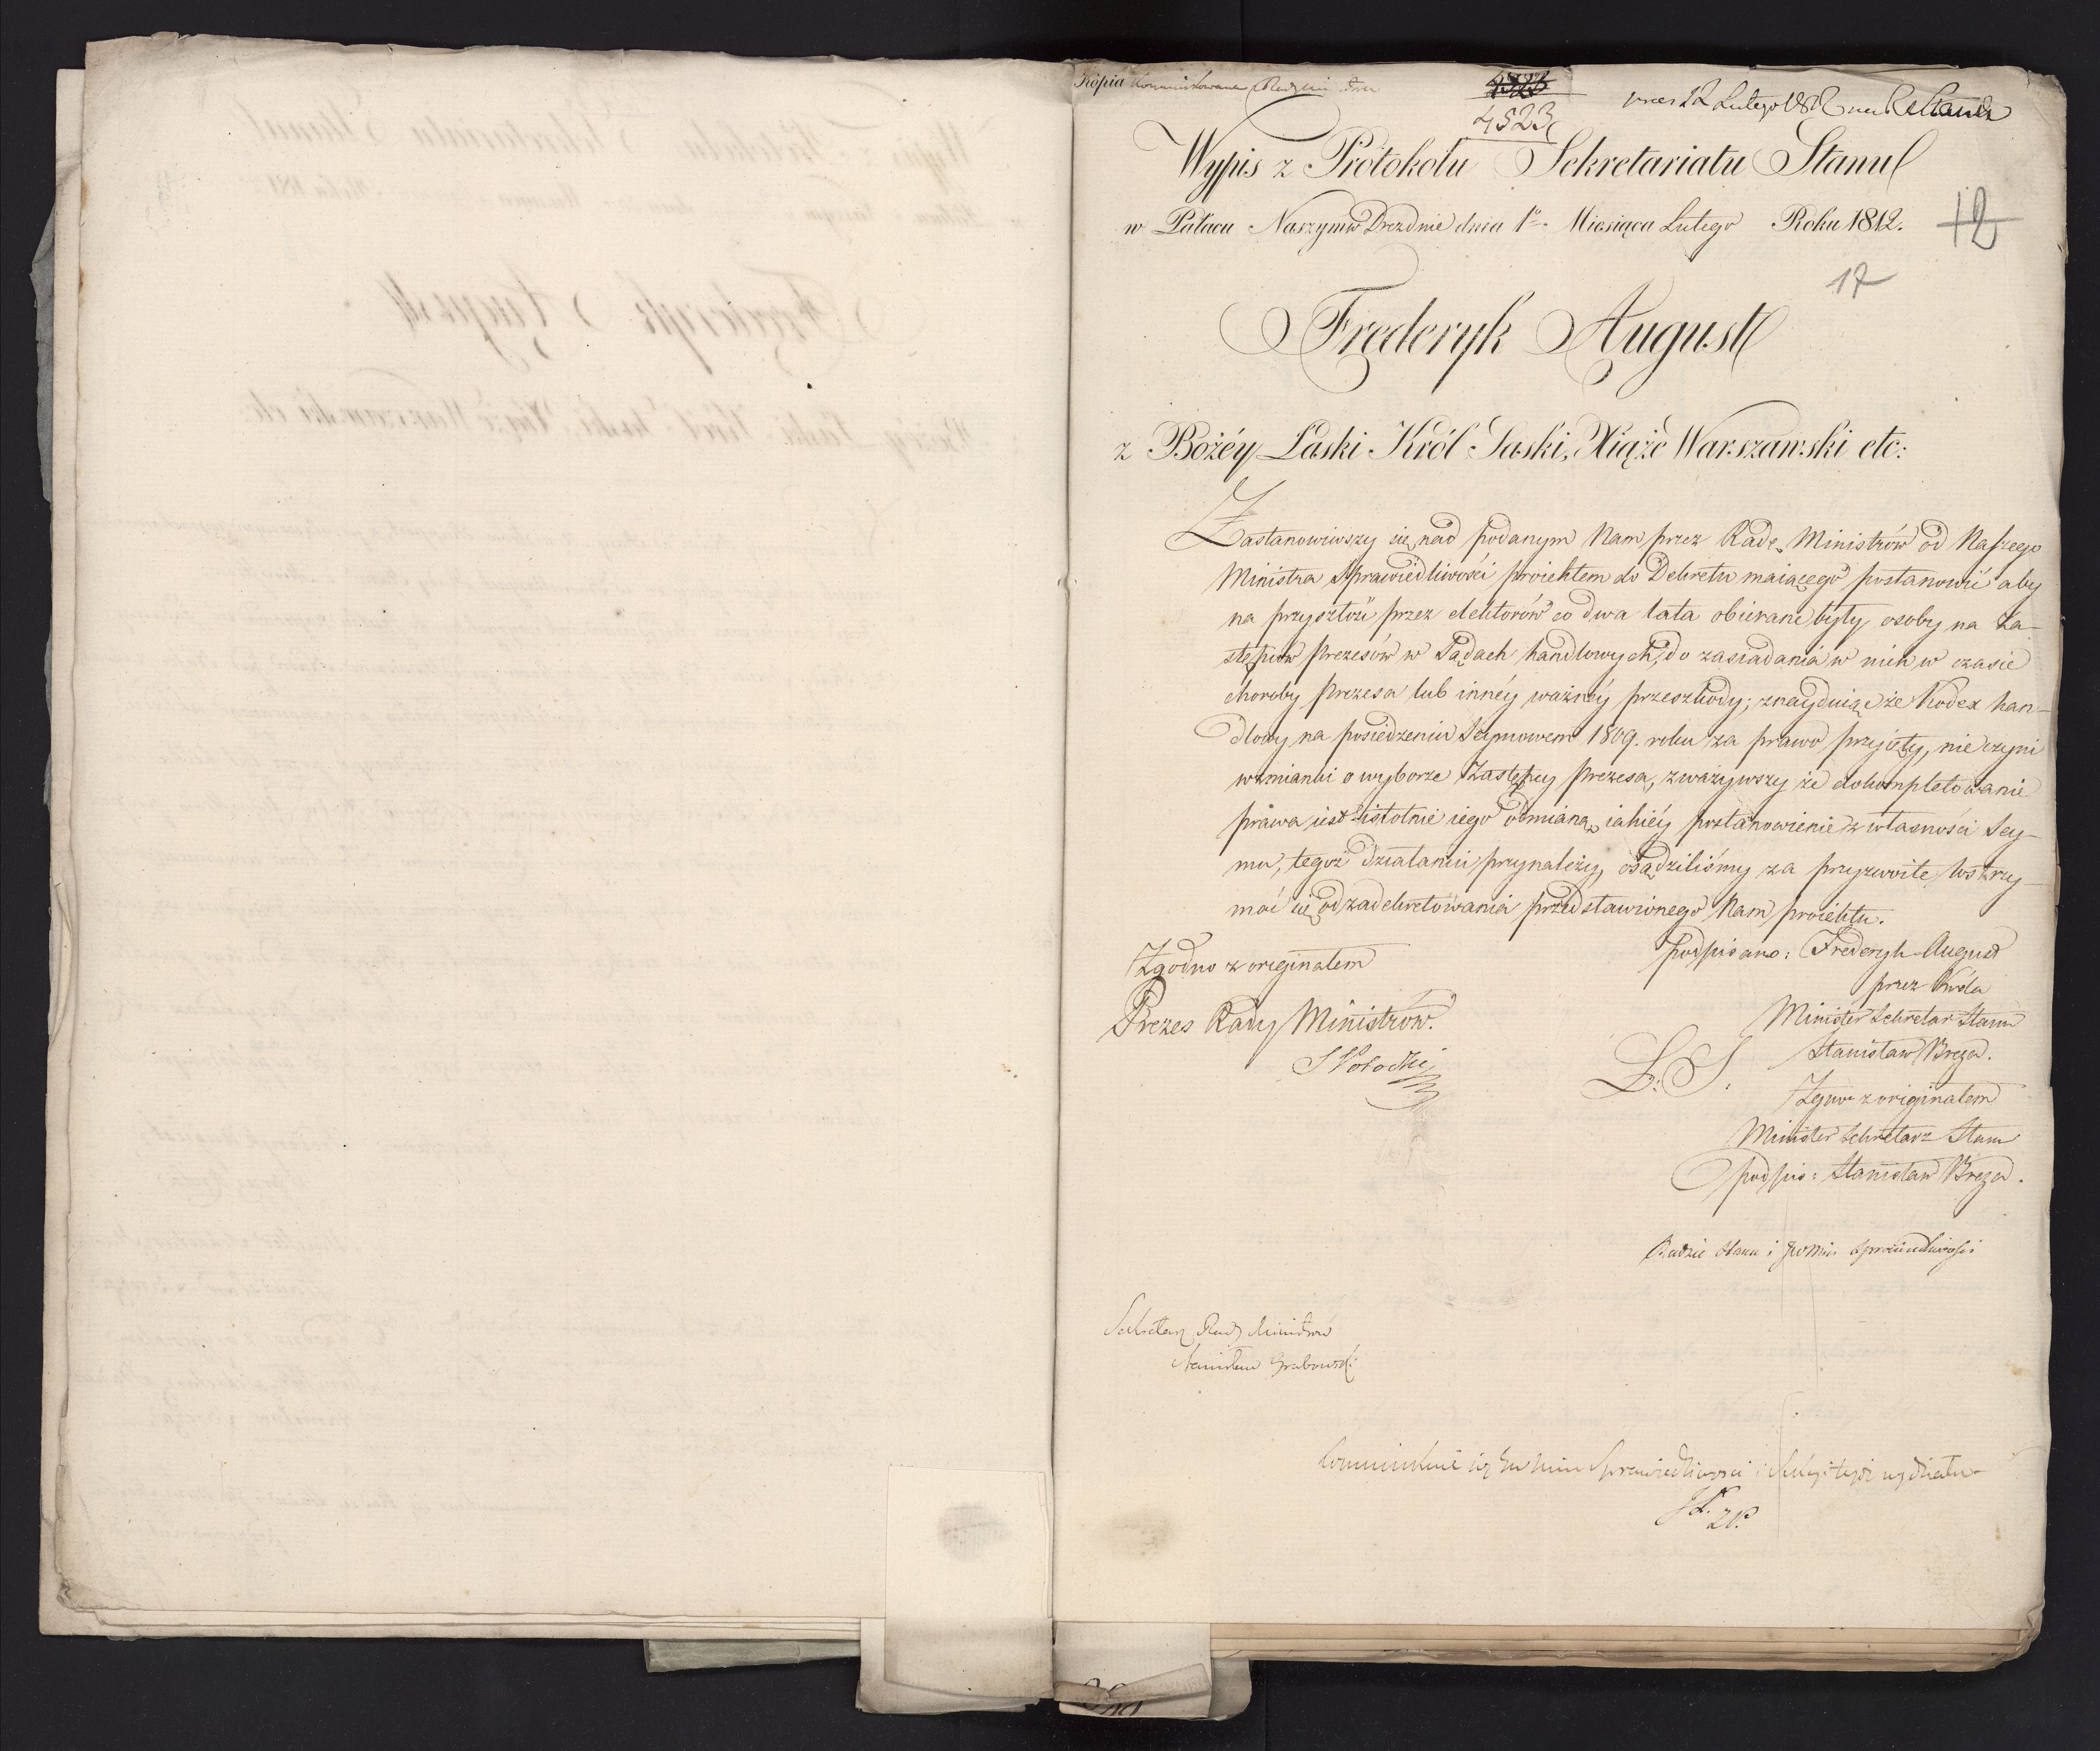 Kopia kommunikowana Radzie Stanu
4523
12 Lutego 1812 na R. Stanu
Wypis z Protokołu Sekretariatu Stanu
w Pałacu Naszym w Dreznie dnia 1º. Miesiąca Lutego Roku 1812.
12
17
Frederyk August
z Bożéy Łaski Król Saski, Xiąże Warszawski etc:
Zastanowiwszy się nad podanym Nam przez Radę Ministrów od Naszego
Ministra Sprawiedliwości proiektem do Dekretu maiącego postanowić aby
na przyszłość przez elektorów co dwa lata obierane były osoby na Za-
stępców Prezesów w Sądach handlowych, do zasiadania w nich w czasie
choroby Prezesa lub innéy ważnéy przeszkody; znayduiąc że Kodex han-
dlowy na posiedzeniu Seymowem 1809. roku za prawo przyięty, nie czyni
wzmianki o wyborze Zastępcy Prezesa, zważywszy że dokompletowanie
prawa iest istotnie iego odmianą, iakiéy postanowienie z własności Sey-
mu, tegoż działaniu przynależy, osądziliśmy za przyzwoite wstrzy-
mać się od zadekretowania przedstawionego Nam proiektu.
Zgodno z originałem
Prezes Rady Ministrów.
S Potocki
podpisano: Frederyk August
przez Króla
Minister Sekretarz Stanu
Stanisław Breza.
L. S.
Zgodno z originałem
Minister Sekretarz Stanu
podpis: Stanisław Breza.
Radzie Stanu i JW Min Sprawiedliwości
Sekretarz Rady Ministrów
Stanisław Grabowski
Sprawiedliwości i
wydziału